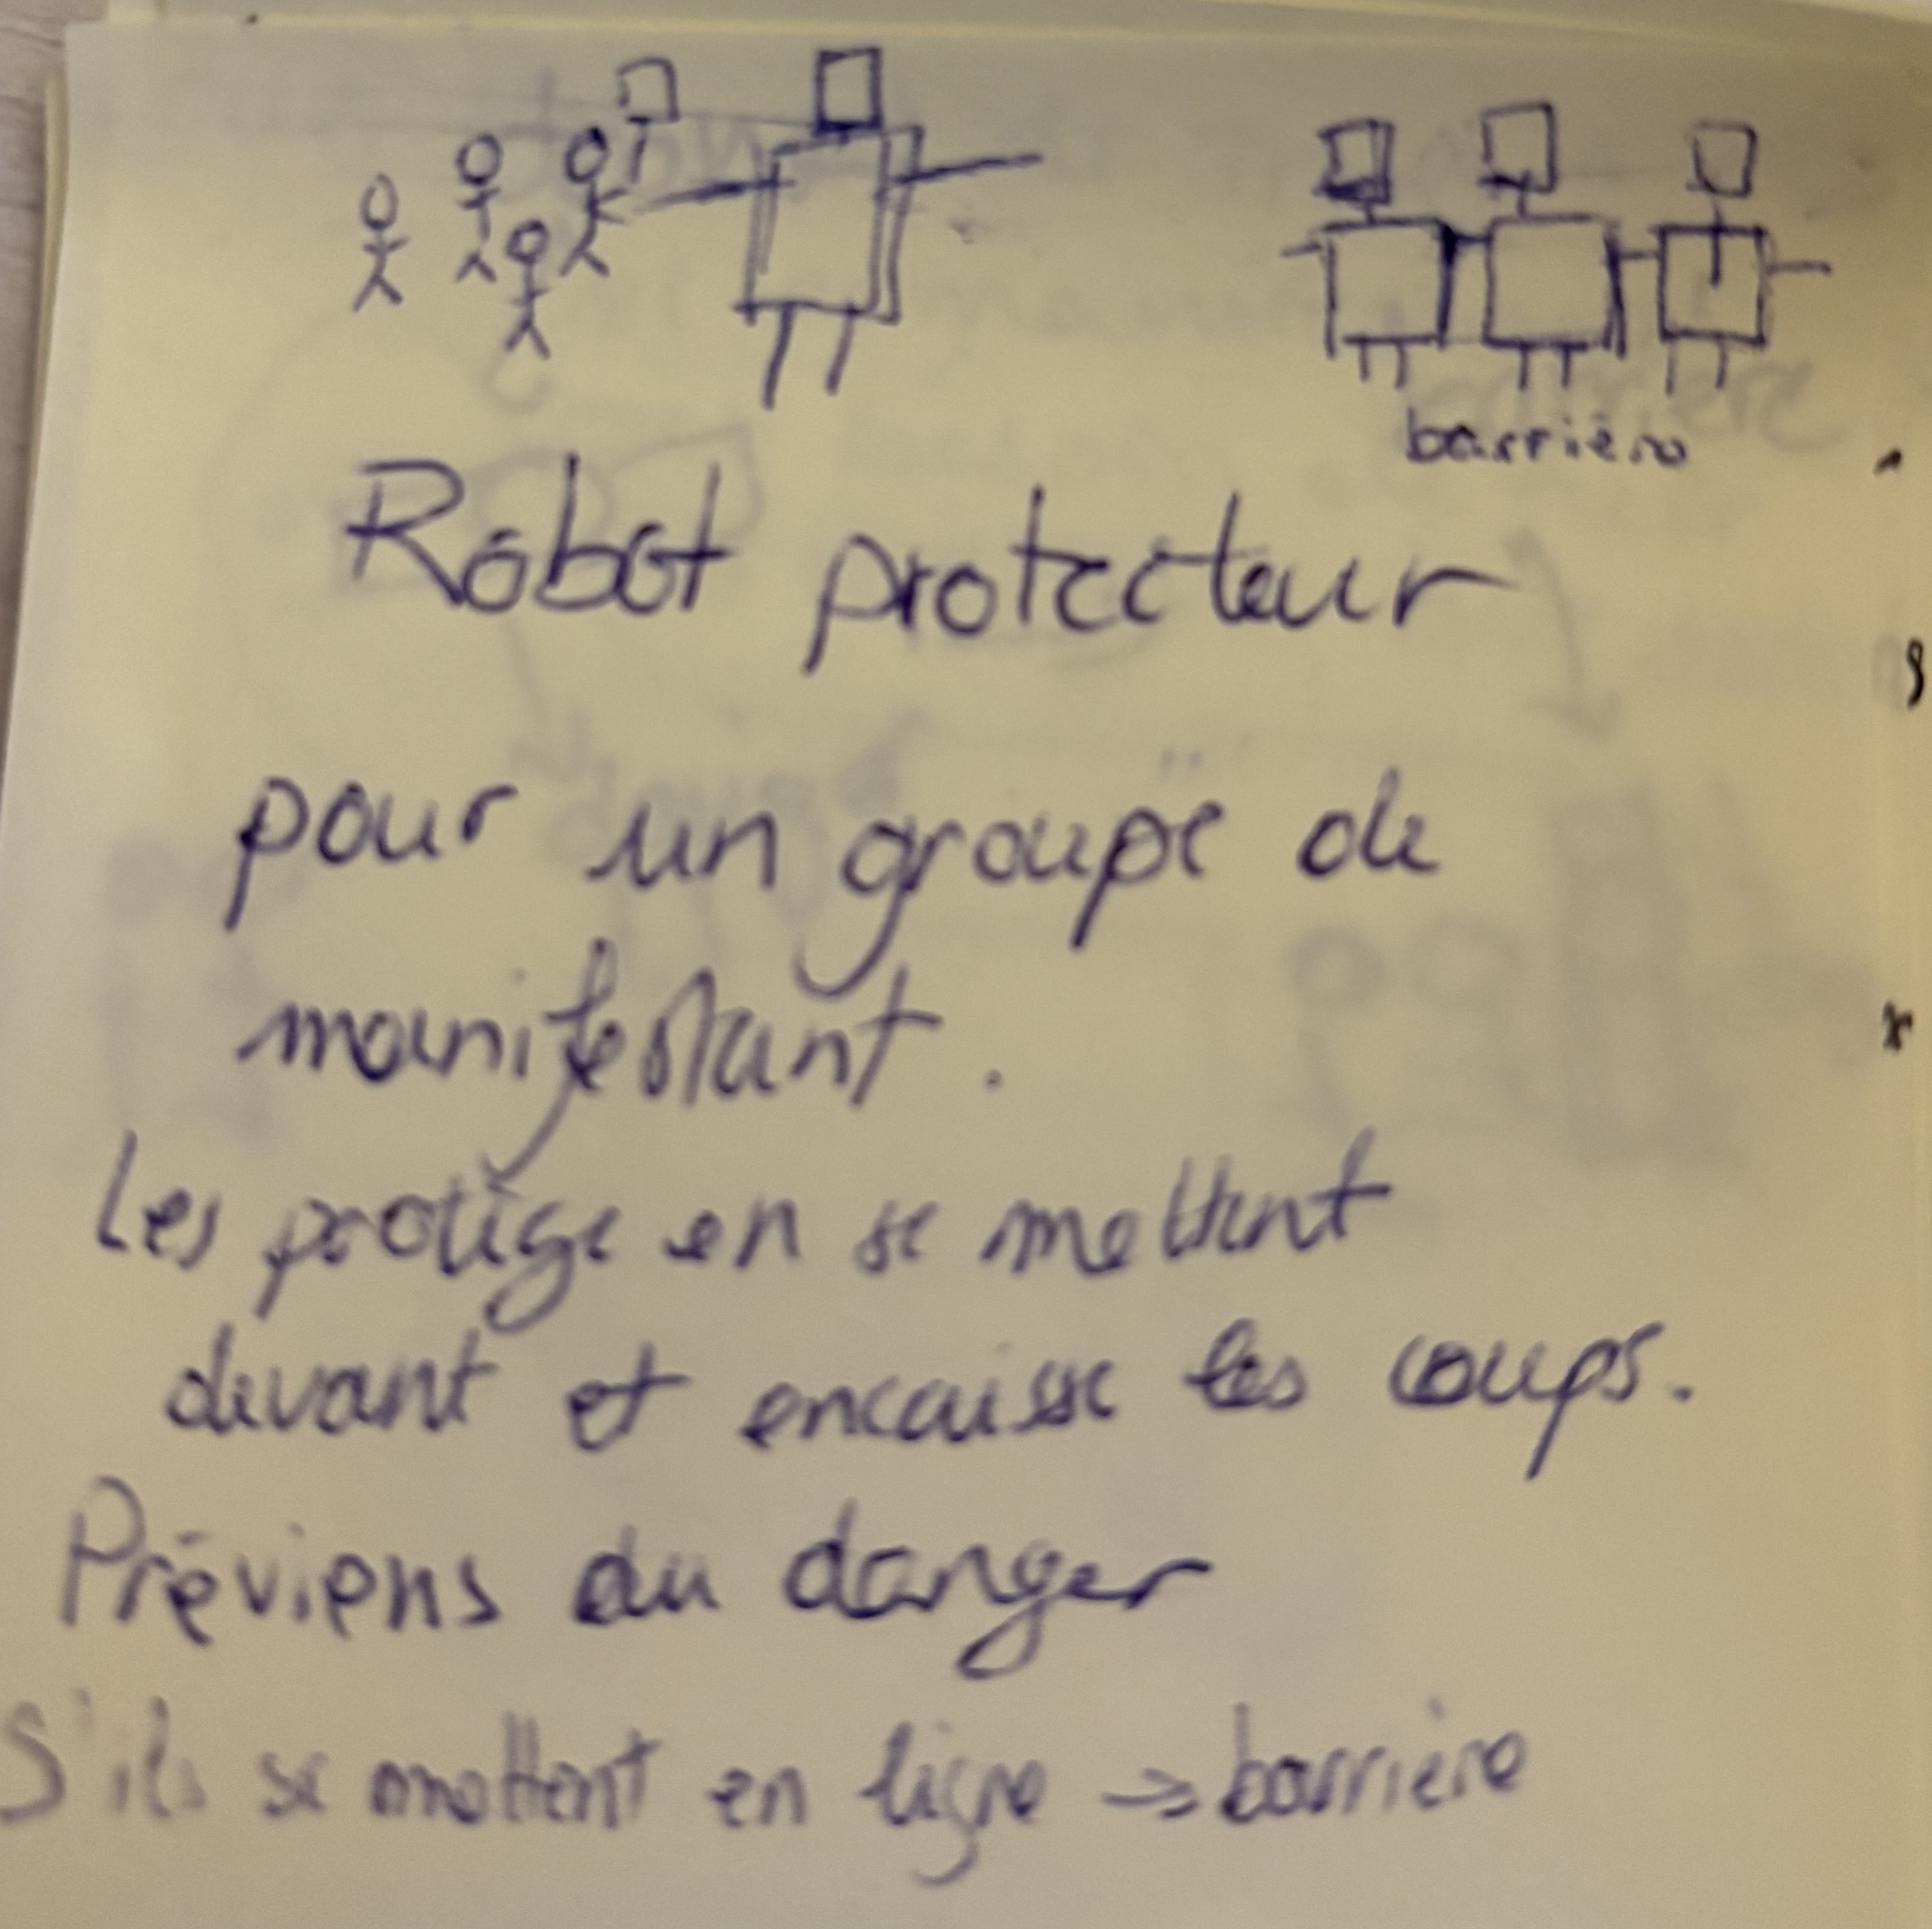 barrière
Robot protecteur
pour un groupe de
manifestant.
Les protège en se mettant
devant et encaisse les coups.
Préviens du danger
S'ils se mettent en ligne → barrière